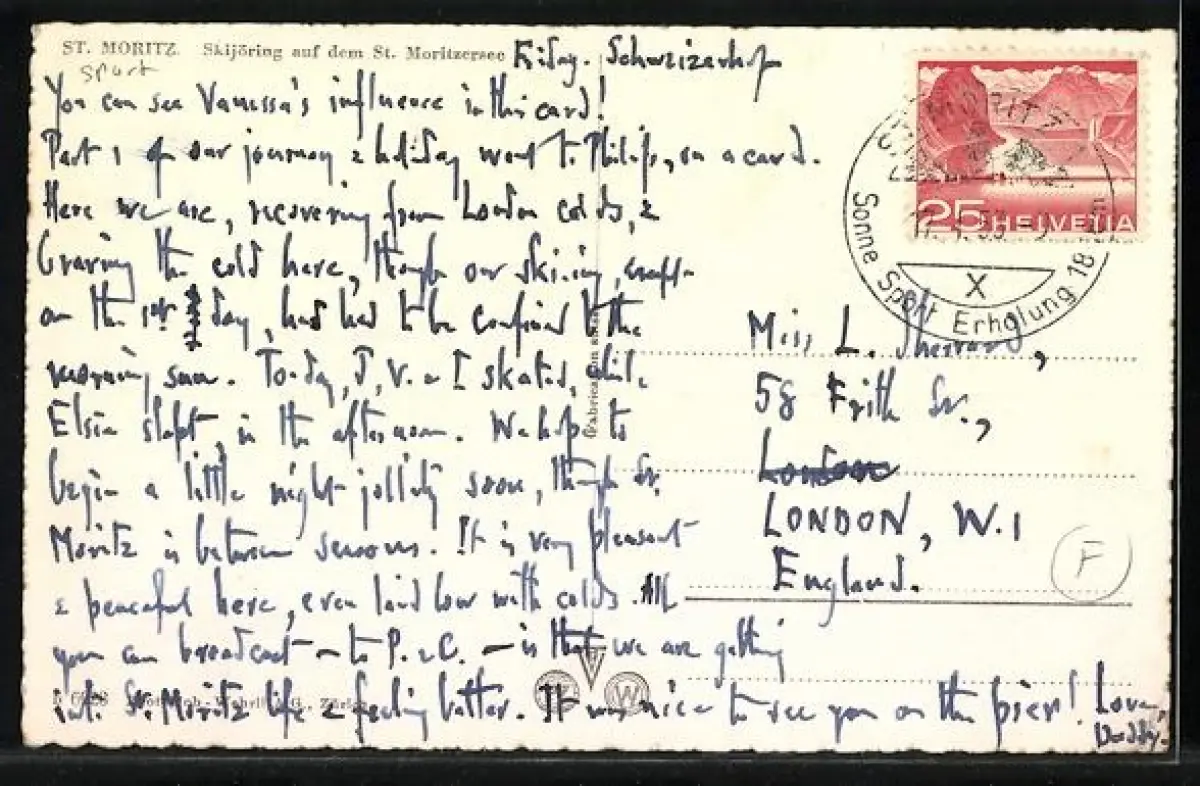 ST. MORITZ. Skijöring auf dem St. Moritzersee
Friday. Schweizerhof
Sport
You can see Vanessa's influence in this card!
Part 1 of our journey & holiday went to Philip, on a card.
Here we are, recovering from London colds, &
braving the cold here, though our skiing, except
on the 1st day, has had to be confined to the
morning sun. To-day, J, V. & I skated, while
Elsie slept, in the afternoon. We hope to
begin a little night jollity soon, though St.
Moritz is between seasons. It is very pleasant
& peaceful here, even laid low with colds. All
you can broadcast – to P. & C. – is that we are getting
into St. Moritz life & feeling better. It was nice to see you on the pier! Love,
25 HELVETIA
ST. MORITZ
Sonne Sport Erholung
X
Miss L.
58 Frith St.,
London
LONDON, W.1
England.
F
W